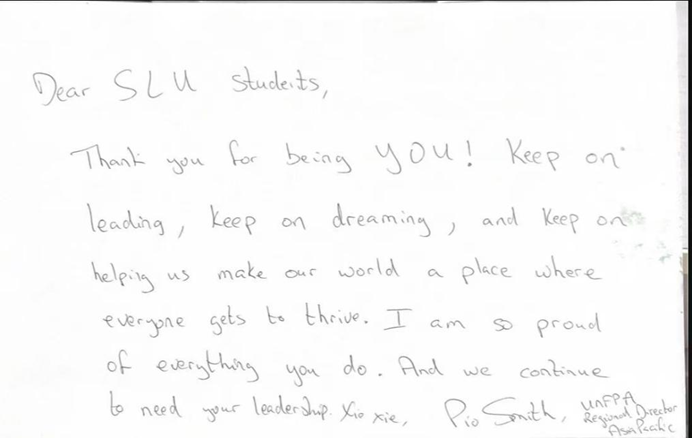 Dear SLU students,
Thank you for being YOU! Keep on
leading, keep on dreaming, and keep on
helping us make our world a place where
everyone gets to thrive. I am so proud
of everything you do. And we continue
to need your leadership. Xio xie, Pio Smith, UNFPA
Regional Director
Asia Pacific